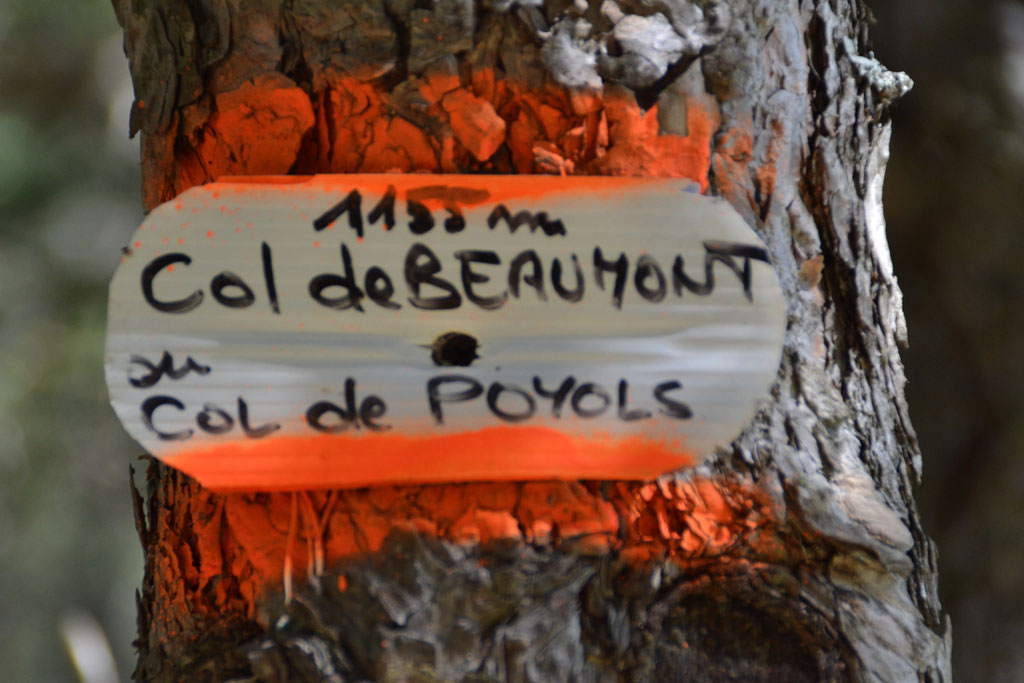 m
Col de BEAUMONT
ou
COL de POYOLS